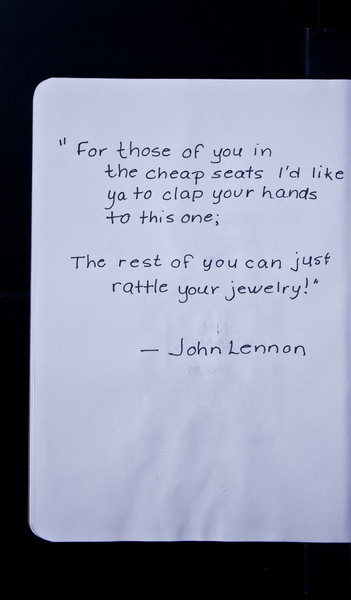 " For those of you in
the cheap seats I'd like
ya to clap your hands
to this one;
The rest of you can just
rattle your jewelry!"
— John Lennon